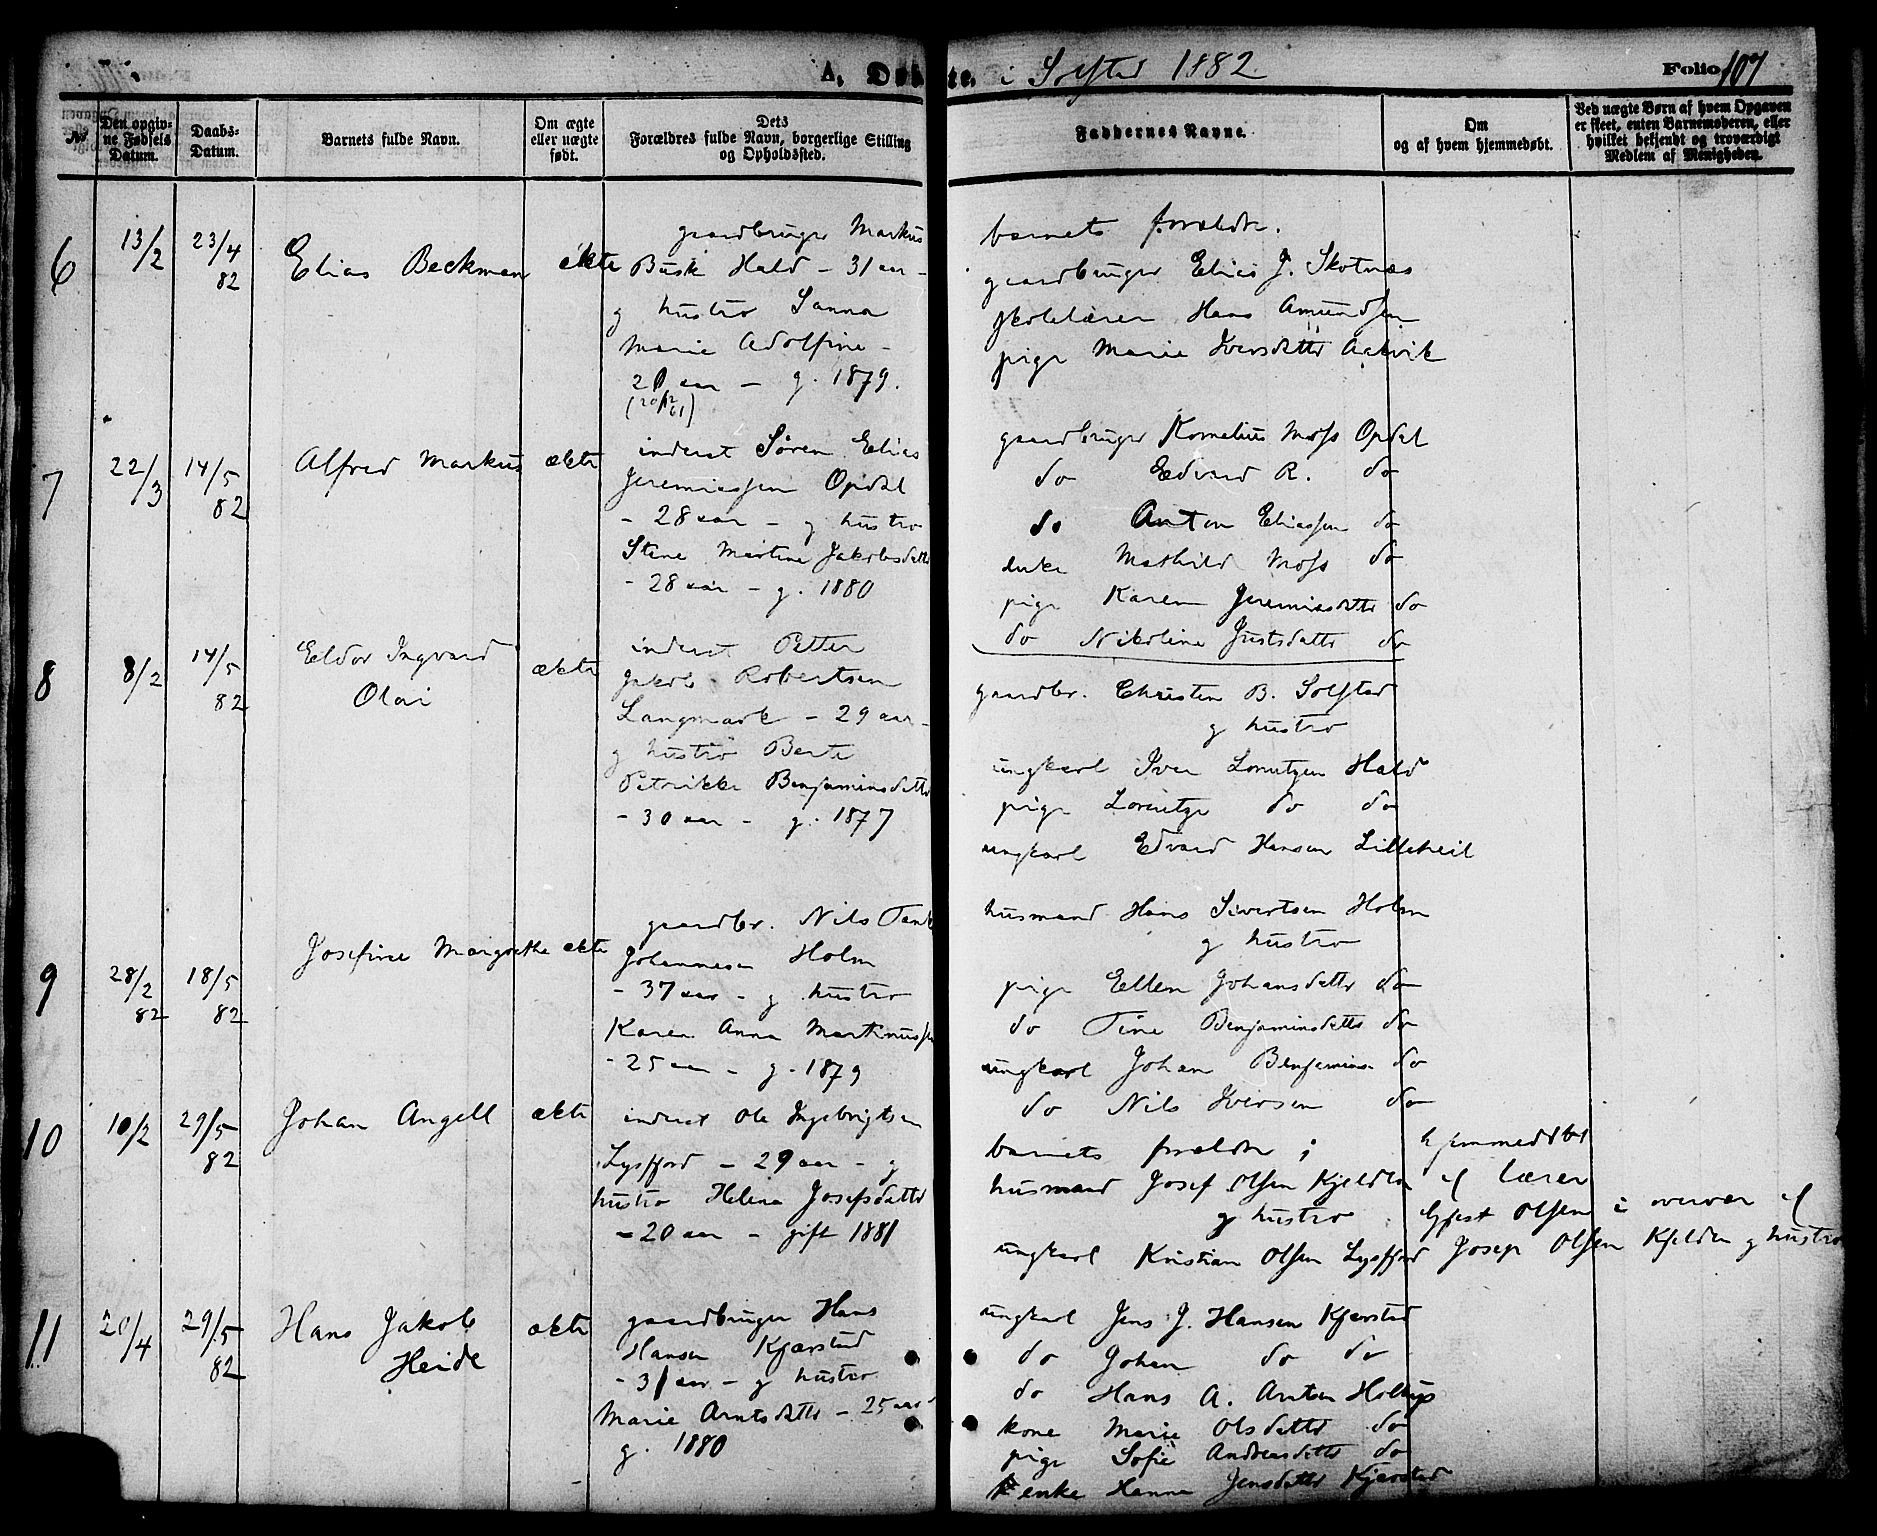 A. Døbte. i Solstad 1882
Folio 107
No
Den opgivne Fødsels Datum.
Daabs-Datum.
Barnets fulde Navn.
Om ægte eller uægte født.
Dets Forældres fulde Navn, borgerlige Stilling og Opholdssted.
Faddernes Navne.
Om og af hvem hjemmedøbt.
Ved uægte Børn af hvem Opgaven er skeet, enten Barnemoderen, eller hvilket bekjendt og troværdigt Medlem af Menigheden.
6
13/2
23/4 82
Elias Beckman
ekte
gaardbruger Markus
Busk Hald - 31 aar -
g hustro Sanna
Marie Adolfine -
21 aar - g. 1879.
barnets forældre.
gaardbruger Elias J. Skotnæs
skolelærer Hans Amundsen
pige Marie Iversdatter Aakvik
7
22/3
14/5 82
Alfred Markus
ækte
inderst Søren Elias
Jeremiassen Opdal
- 28 aar - g hustro
Stine Martine Jakobsdatter
- 28 aar - g. 1880
gaardbruger Kornelius Moss Opdal
do Edvard R. do
do Anton Eliassen do
enke Mathild Moss do
pige Karen Jeremiasdatter do
do Nikoline Justsdatter do
8
8/2
14/5 82
Eldor Ingvard
Olai
ækte
inderst Petter
Jakob Robertsen
Langmark - 29 aar -
g hustro Berte
Petrikke Benjaminsdatter
- 30 aar - g. 1877
gaardbr. Christen B. Solstad
g hustro
ungkarl Iver Lorentzen Hald
pige Lorentze do do
ungkarl Edvard Hansen Lilleheil
9
28/2 82
18/5 82
Josefine Margrethe
ekte
gaardbr. Nils Tank
Johannesen Holm
- 37 aar - g hustro
Karen Anna
- 25 aar - g. 1879
husmand Hans Sivertsen Holm
g hustro
pige Ellen Johansdatter do
do Tine Benjaminsdatter do
ungkarl Johan Benjamins. do
do Nils Iversen do
10
10/2
29/5 82
Johan Angell
ækte
inderst Ole Ingebrigtsen
Lysfjord - 29 aar - g
hustro Helena Josefsdatter
- 20 aar - gift 1881
barnets forældre ;
husmand Josef Olsen Kjelden
g hustro
ungkarl Kristian Olsen Lysfjord
hjemmedøbt
af lærer
Olsen i overvær af
Josef Olsen Kjelden g hustro
11
20/4
29/5 82
Hans Jakob
Heide
ækte
gaardbruger Hans
Hansen Kjærstad
- 31 aar - g hustro
Marie Arntsdatter - 25 aar
g. 1880
ungkarl Jens J. Hansen Kjærstad
do Johan do do
do Hans A. Antsen
kone Marie Olsdatter do
pige Sofie Andreasdatter do
enke Hanna Jensdatter Kjærstad